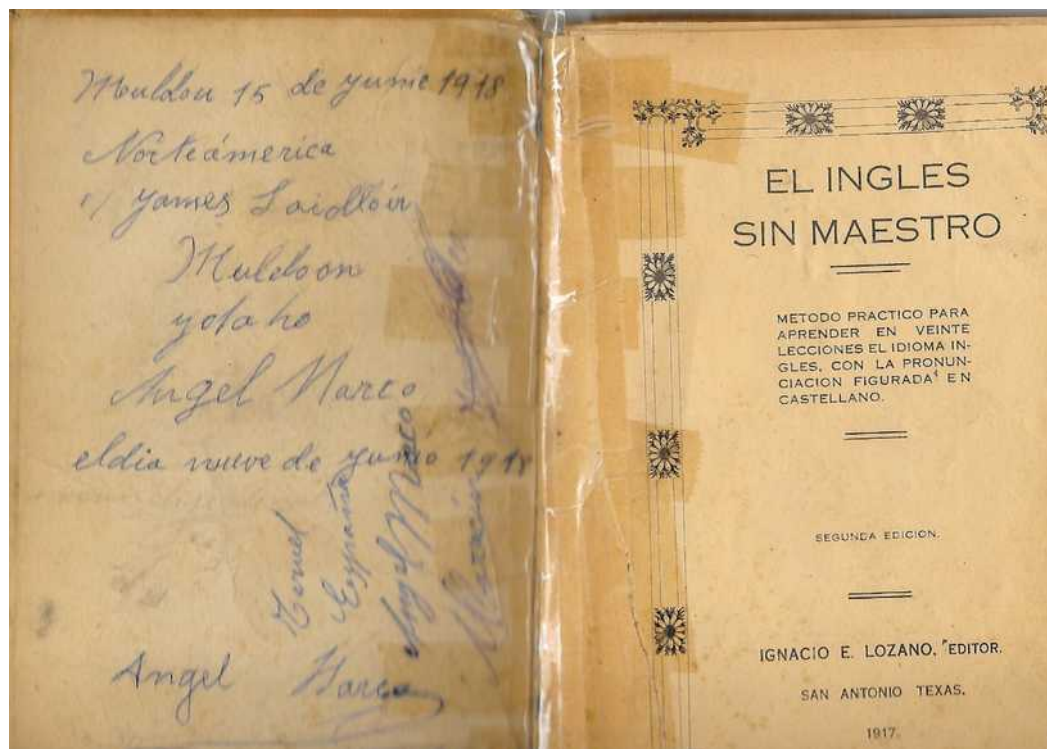 Muldou 15 de yunie 1918
Norteámerica
yames Laidlöin
Muldoon
ydaho
Angel Marco
eldia nueve de yunio 1918
Teruel
España
Angel Marco
Angel Marco
EL INGLES
SIN MAESTRO
METODO PRACTICO PARA
APRENDER EN VEINTE
LECCIONES EL IDIOMA IN-
GLES, CON LA PRONUN-
CIACION FIGURADA EN
CASTELLANO.
SEGUNDA EDICION.
IGNACIO E. LOZANO, EDITOR.
SAN ANTONIO TEXAS.
1917.